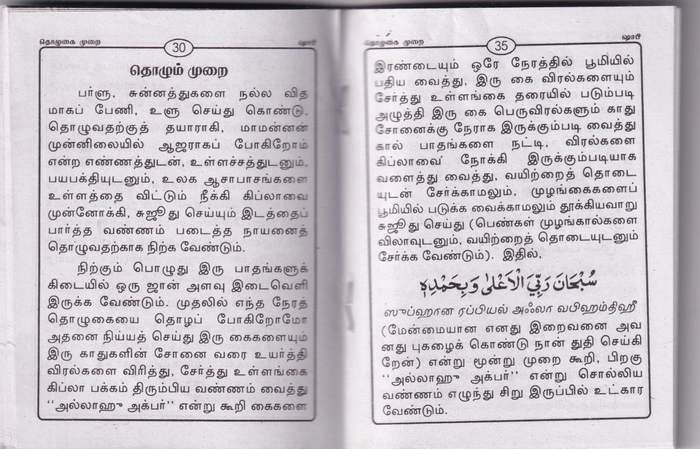 தொழுகை முறை
30
ஷாபி
தொழும் முறை
பர்ளு, சுன்னத்துகளை நல்ல வித
மாகப் பேணி, உளு செய்து கொண்டு,
தொழுவதற்குத் தயாராகி, மாமன்னன்
முன்னிலையில் ஆஜராகப் போகிறோம்
என்ற எண்ணத்துடன், உள்ளச்சத்துடனும்,
பயபக்தியுடனும், உலக ஆசாபாசங்களை
உள்ளத்தை விட்டும் நீக்கி கிப்லாவை
முன்னோக்கி, சுஜூது செய்யும் இடத்தைப்
பார்த்த வண்ணம் படைத்த நாயனைத்
தொழுவதற்காக நிற்க வேண்டும்.
நிற்கும் பொழுது இரு பாதங்களுக்
கிடையில் ஒரு ஜான் அளவு இடைவெளி
இருக்க வேண்டும். முதலில் எந்த நேரத்
தொழுகையை தொழப் போகிறோமோ
அதனை நிய்யத் செய்து இரு கைகளையும்
இரு காதுகளின் சோனை வரை உயர்த்தி
விரல்களை விரித்து, சேர்த்து உள்ளங்கை
கிப்லா பக்கம் திரும்பிய வண்ணம் வைத்து
"அல்லாஹு அக்பர்" என்று கூறி கைகளை
தொழுகை முறை
35
ஷாபி
இரண்டையும் ஒரே நேரத்தில் பூமியில்
பதிய வைத்து, இரு கை விரல்களையும்
சேர்த்து உள்ளங்கை தரையில் படும்படி
அழுத்தி இரு கை பெருவிரல்களும் காது
சோனைக்கு நேராக இருக்கும்படி வைத்து
கால் பாதங்களை நட்டி, விரல்களை
கிப்லாவை நோக்கி இருக்கும்படியாக
வளைத்து வைத்து, வயிற்றைத் தொடை
யுடன் சேர்க்காமலும், முழங்கைகளைப்
பூமியில் படுக்க வைக்காமலும் தூக்கியவாறு
சுஜூது செய்து (பெண்கள் முழங்கால்களை
விலாவுடனும், வயிற்றைத் தொடையுடனும்
சேர்க்க வேண்டும்). இதில்,
سُبْحَانَ رَبِّيَ الْاَعْلٰى وَبِحَمْدِهٖ
ஸுப்ஹான ரப்பியல் அஃலா வபிஹம்திஹீ
(மேன்மையான எனது இறைவனை அவ
னது புகழைக் கொண்டு நான் துதி செய்கி
றேன்) என்று மூன்று முறை கூறி, பிறகு
"அல்லாஹு அக்பர்" என்று சொல்லிய
வண்ணம் எழுந்து சிறு இருப்பில் உட்கார
வேண்டும்.